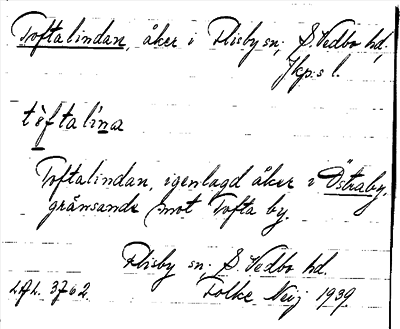 Toftalindan, åker i Flisby sn, S. Vedbo hd,
Jkp:s l.
tèftalina
Toftalindan, igenlagd åker i Östraby,
gränsande mot Tofta by.
Flisby sn. S. Vedbo hd.
Folke Neij 1939.